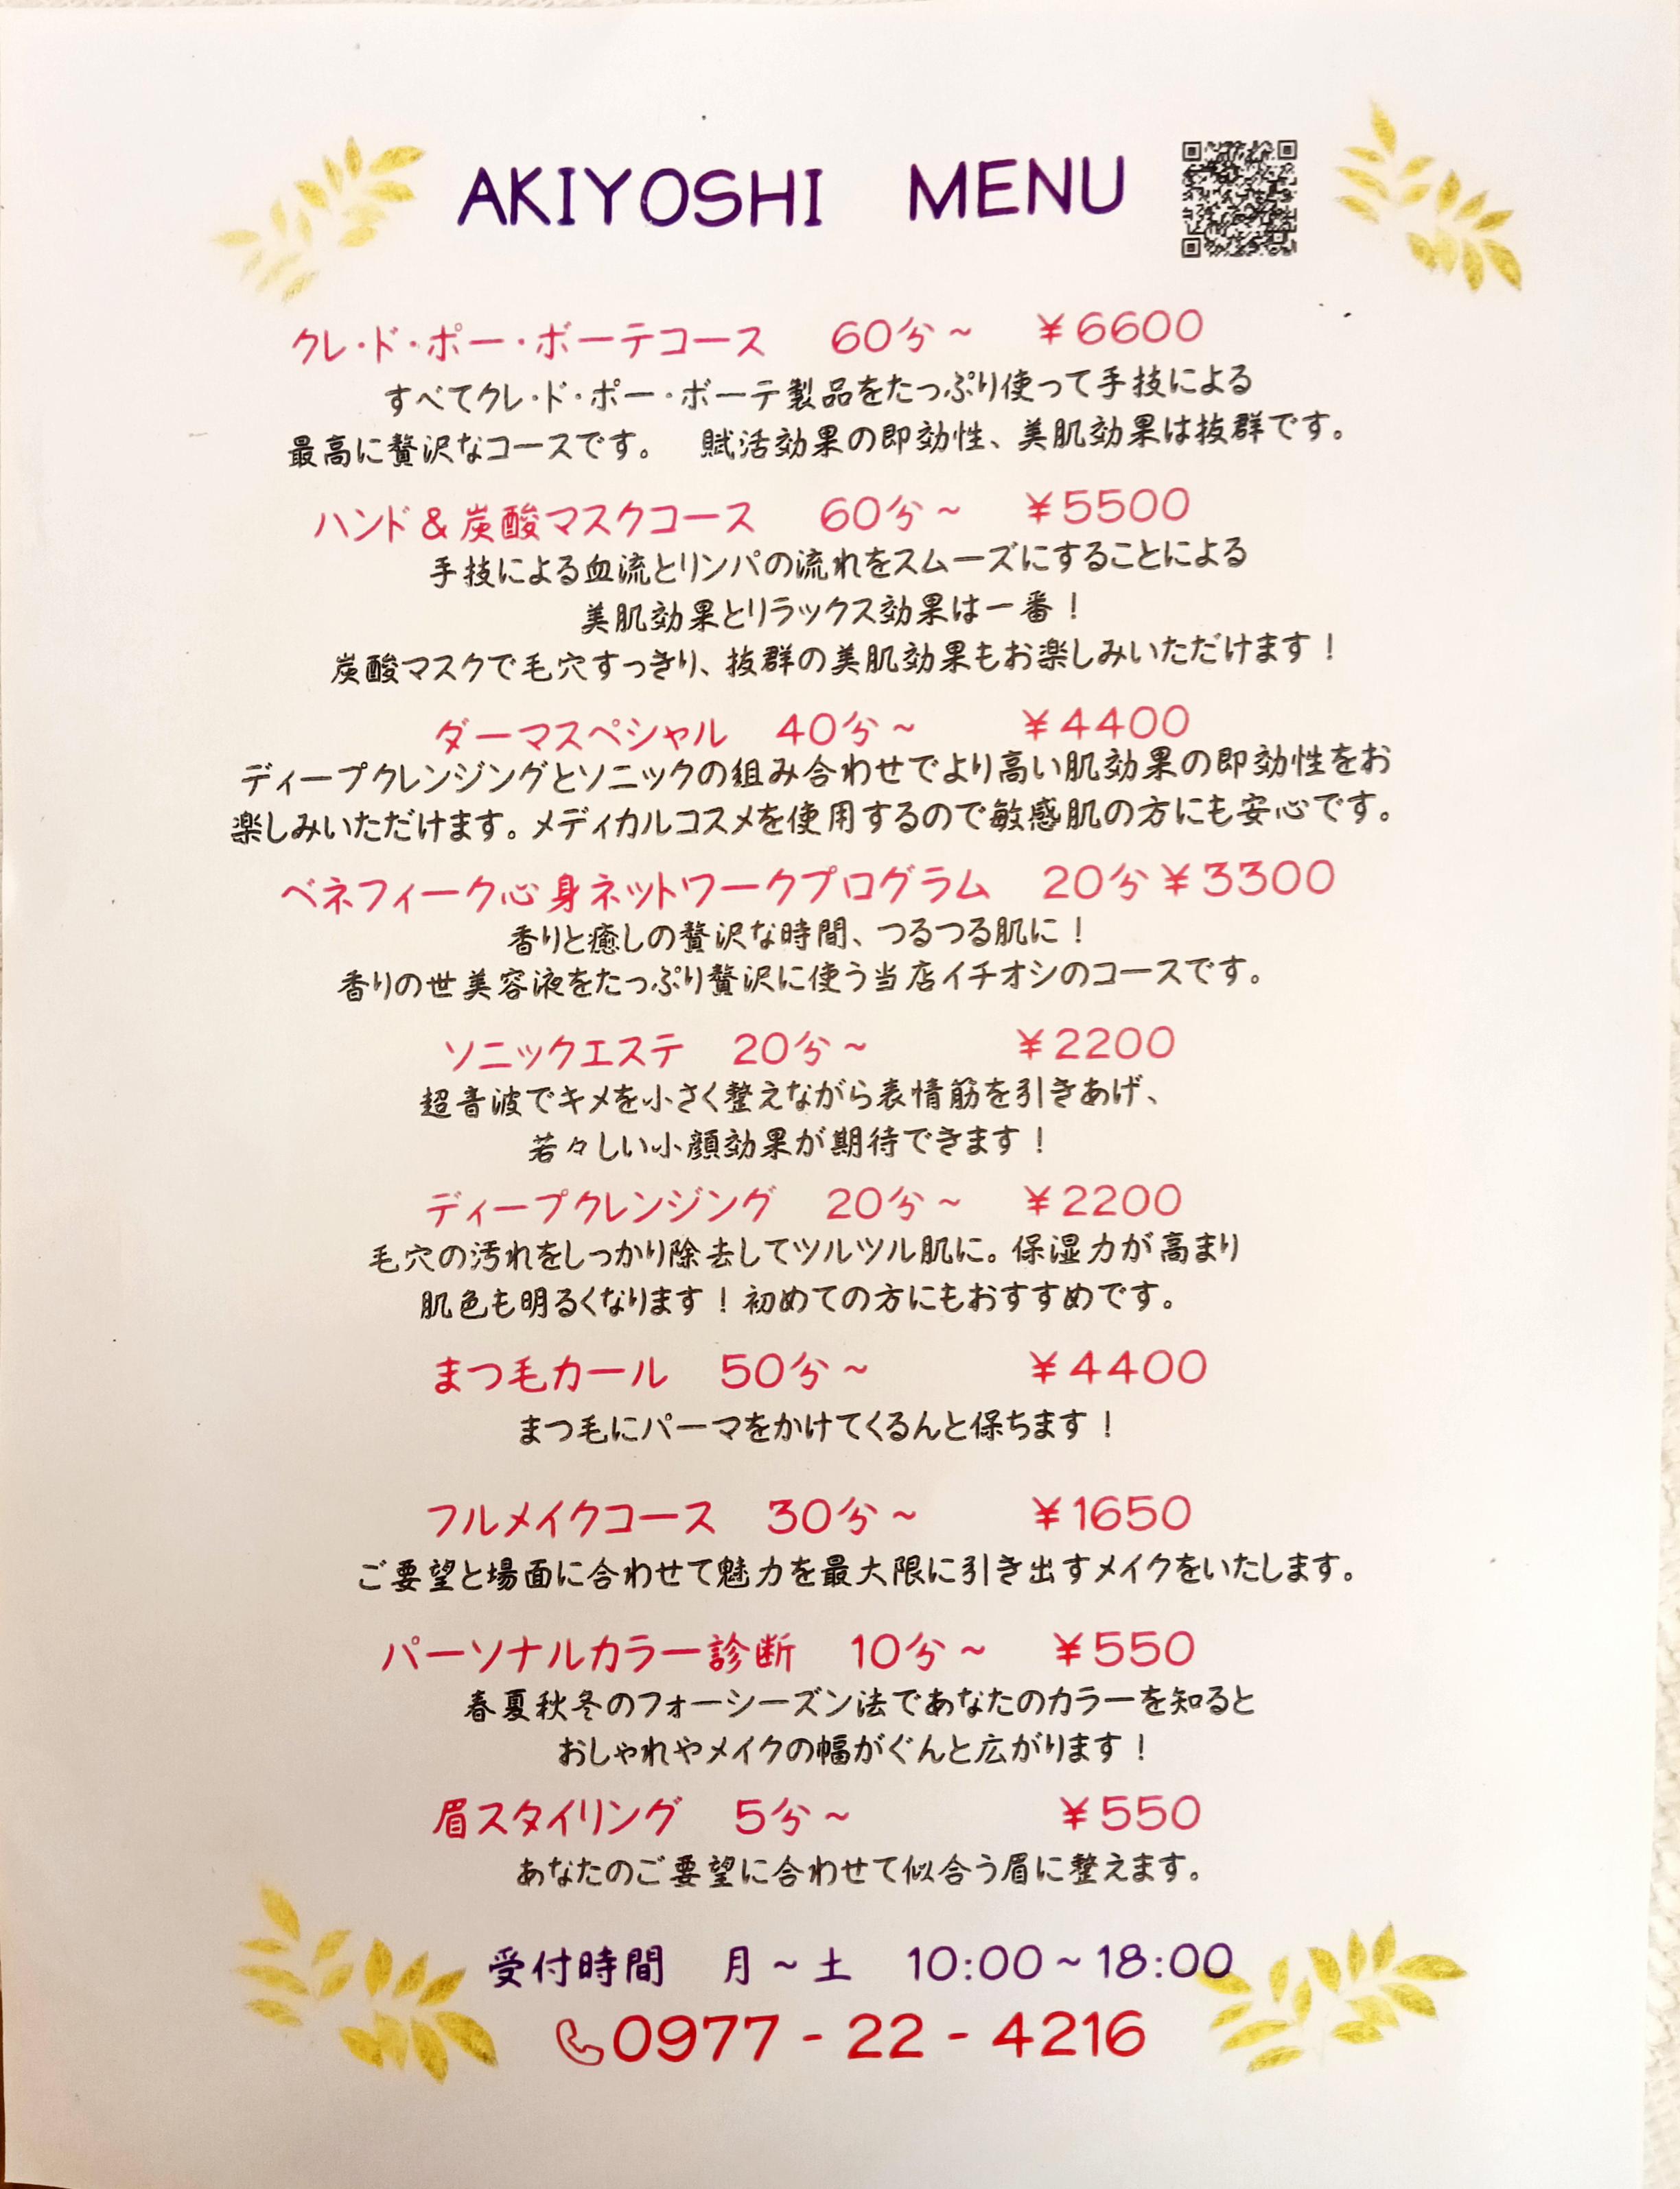 AKIYOSHI MENU
クレ・ド・ポー・ボーテコース 60分~ ¥6600
すべてクレ・ド・ポー・ボーテ製品をたっぷり使って手技による
最高に贅沢なコースです。 賦活効果の即効性、美肌効果は抜群です。
ハンド&炭酸マスクコース 60分~ ¥5500
手技による血流とリンパの流れをスムーズにすることによる
美肌効果とリラックス効果は一番!
炭酸マスクで毛穴すっきり、抜群の美肌効果もお楽しみいただけます!
ダーマスペシャル 40分~ ¥4400
ディープクレンジングとソニックの組み合わせでより高い肌効果の即効性をお
楽しみいただけます。メディカルコスメを使用するので敏感肌の方にも安心です。
ベネフィーク心身ネットワークプログラム 20分¥3300
香りと癒しの贅沢な時間、つるつる肌に!
香りの世美容液をたっぷり贅沢に使う当店イチオシのコースです。
ソニックエステ 20分~ ¥2200
超音波でキメを小さく整えながら表情筋を引きあげ、
若々しい小顔効果が期待できます!
ディープクレンジング 20分~ ¥2200
毛穴の汚れをしっかり除去してツルツル肌に。保湿力が高まり
肌色も明るくなります!初めての方にもおすすめです。
まつ毛カール 50分~ ¥4400
まつ毛にパーマをかけてくるんと保ちます!
フルメイクコース 30分~ ¥1650
ご要望と場面に合わせて魅力を最大限に引き出すメイクをいたします。
パーソナルカラー診断 10分~ ¥550
春夏秋冬のフォーシーズン法であなたのカラーを知ると
おしゃれやメイクの幅がぐんと広がります!
眉スタイリング 5分~ ¥550
あなたのご要望に合わせて似合う眉に整えます。
受付時間 月~土 10:00~18:00
0977-22-4216